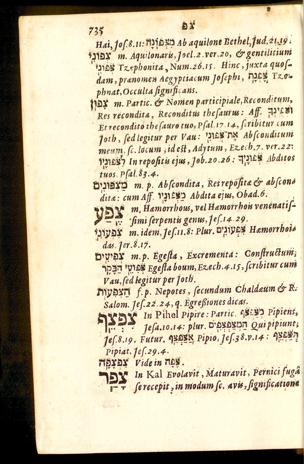 735 צפ
Hai, Jos.8.11: מִצְּפוֹנָה Ab aquilone Bethel, Jud.21.19.
צְפוֹנִי m. Aquilonaris, Joel.2.ver.20, & gentilitium
צְפוֹנִי Tzephonita, Num.26.15. Hinc, juxta quos-
dam, prænomen Ægyptiacum Josephi, צָפְנַת Tzo-
phnat. Occulta significans.
צָפוּן m. Partic. & Nomen participiale, Reconditum,
Res recondita, Reconditus thesaurus: Aff. וּצְפוּנְךָ
Et recondito thesauro tuo, Psal.17.14, scribitur cum
Joth, sed legitur per Vau: אֶת־צְפוּנִי Absconditum
meum. sc. locum, id est, Adytum, Ezech.7. ver.22:
לִצְפּוּנָיו In repositis ejus, Job.20.26: צְפוּנֶיךָ Abditos
tuos. Psal.83.4.
מַצְפּוּנִים m. p. Abscondita, Res reposita & abscon-
dita: cum Aff. מַצְפֻּנָיו Abdita ejus, Obad.6.
צֶפַע m, Hæmorrhous, vel Hæmorrhois venenatis-
simi serpentis genus, Jes.14.29.
צִפְעוֹנִי m. idem, Jes.11.8: Plur. צִפְעֹנִים Hæmorrhoi-
das. Jer.8.17.
צְפִיעִים m.p. Egesta, Excrementa: Constructum;
צְפוּעֵי הַבָּקָר Egesta boum, Ezech.4.15, scribitur cum
Vau, sed legitur per Joth.
הַצְּפִעוֹת f. p. Nepotes, secundum Chaldæum & R.
Salom. Jes.22.24, q. Egressiones dicas.
צִפְצֵף In Pihel Pipire: Partic. מְצַפְצֵף Pipiens,
Jesa.10.14: plur. הַמְצַפְצְפִים Qui pipiunt;
Jes.8.19. Futur. אֲצַפְצֵף Pipio, Jes.38.v.14: תְּצַפְצֵף
Pipiat. Jes.29.4.
צַפְצָפָה Vide in צָפָה.
צָפַר In Kal Evolavit, Maturavit, Pernici fugâ
se recepit, in modum sc. avis, significatione